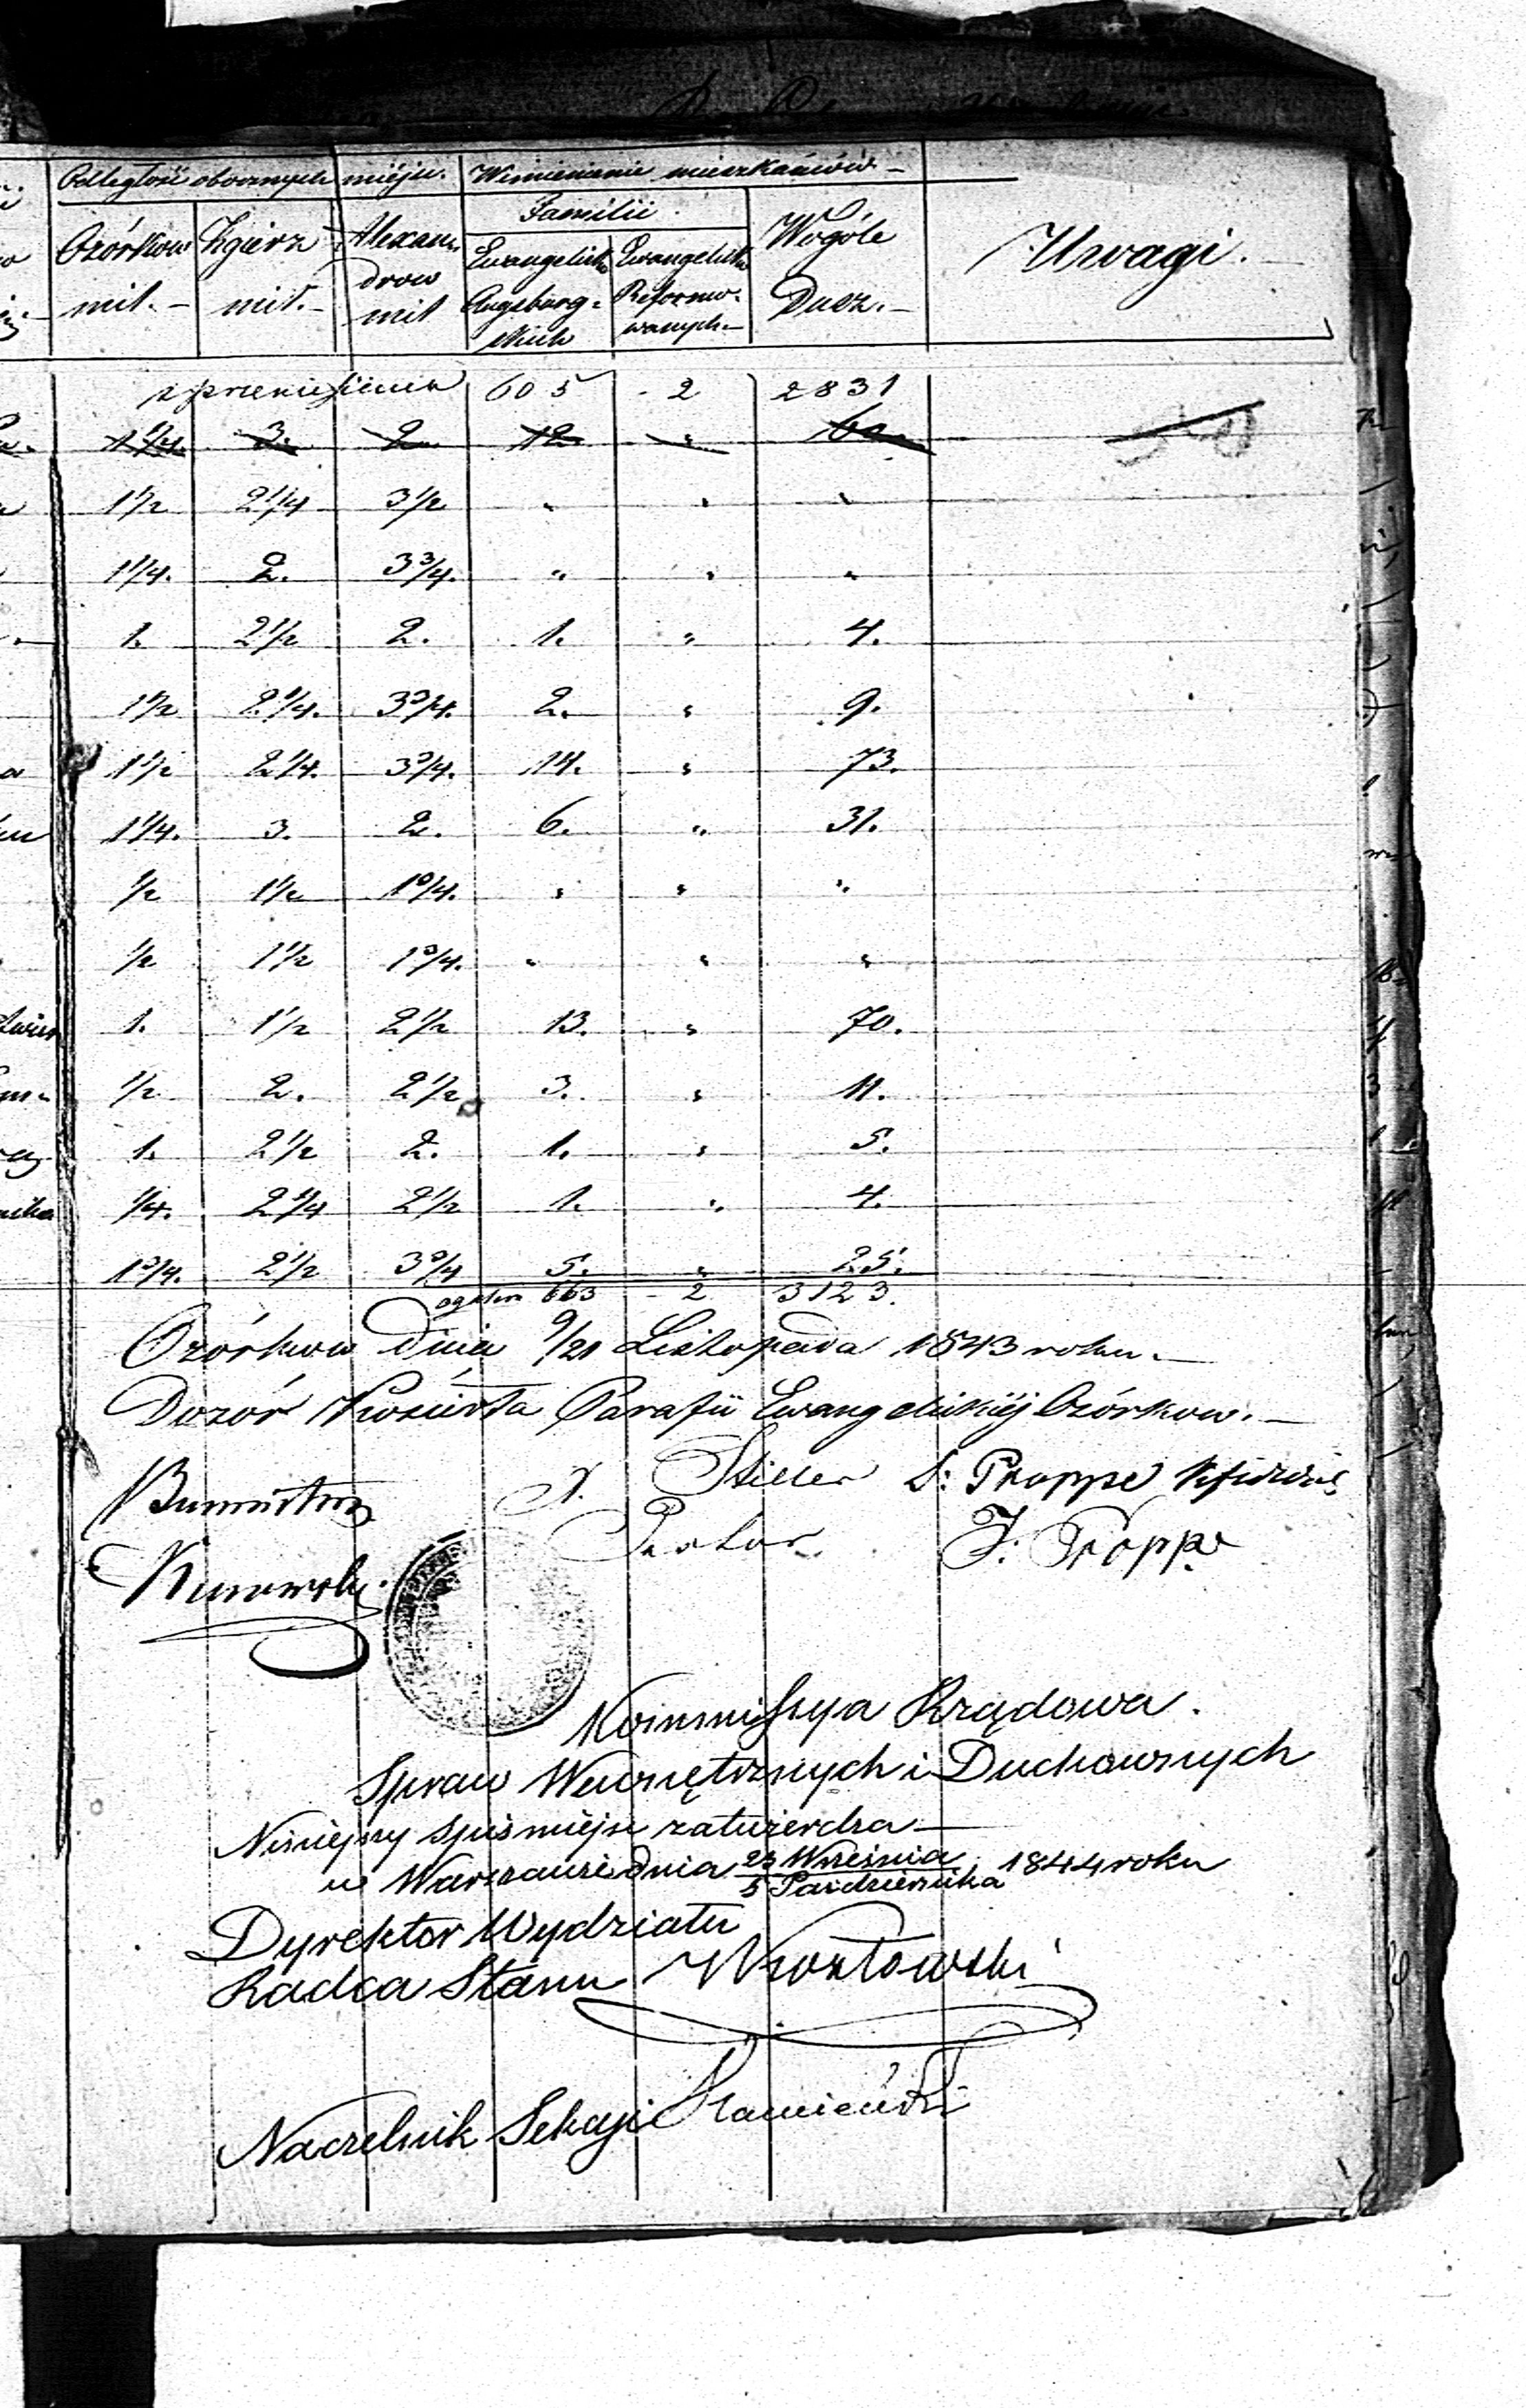 Odległość obocznych miejsc. Wimienienie mieszkańców
Familii
Ozórkow mil. Zgierz mil. Alexandrow mil Ewangelicko Augsburgskich Ewangelicko Reformowanych Wogóle Dusz. Uwagi.
z przeniesienia 605 2 2831
1 1/4. 3. 2. 12 " 60.
1 1/2 2 1/4 3 1/2 " " "
1 1/4. 2. 3 3/4. " " "
1. 2 1/2 2. 1. " 4.
1 1/2 2 1/4. 3 3/4. 2. " 9.
1 1/2 2 1/4. 3 3/4. 14. " 73.
1 1/4. 3. 2. 6. " 31.
1/2 1 1/2 1 3/4. " " "
1/2 1 1/2 1 3/4. " " "
1. 1 1/2 2 1/2 13. " 70.
1/2 2. 2 1/2 3. " 11.
1. 2 1/2 2. 1. " 5.
1/4. 2 1/4 2 1/2 1. " 4.
1 3/4. 2 1/2 3 3/4 5. " 25.
ogółem 663 2 3123.
Ozórkow dnia 9/21 Listopada 1843 roku.
Dozór Kościoła Parafii Ewangelickiéj Ozórkow.
Burmistrz Stiller S: Proppe
Pastor J. Proppe
Kommissya Rządowa.
Spraw Wewnętrznych i Duchownych
Niniejszy spis miejsc zatwierdza
w Warszawie dnia 23 Września / 5 Pazdziernika 1844 roku
Dyrektor Wydziału
Radca Stanu
Naczelnik Sekcyi Kamieński